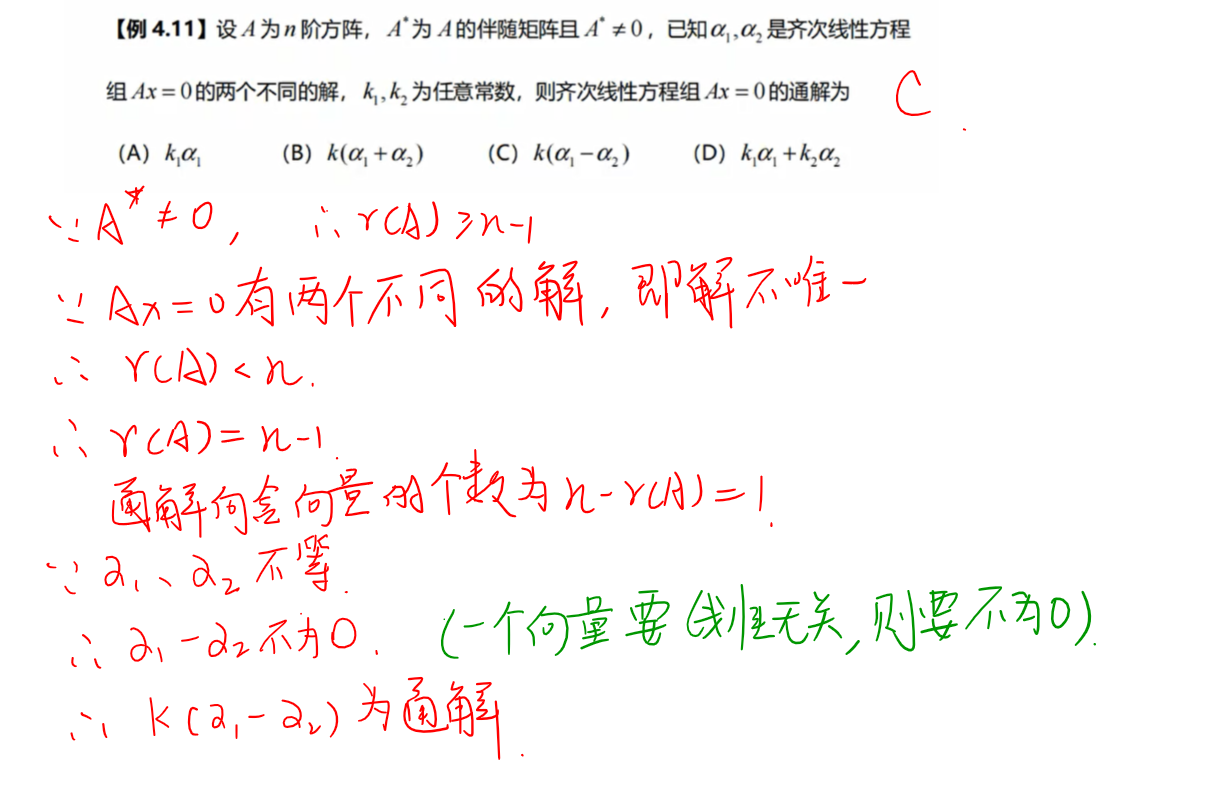 【例 4.11】设 A 为 n 阶方阵，A* 为 A 的伴随矩阵且 A* ≠ 0，已知 α₁,α₂ 是齐次线性方程
组 Ax = 0 的两个不同的解，k₁,k₂ 为任意常数，则齐次线性方程组 Ax = 0 的通解为 C.
(A) k₁α₁ (B) k(α₁+α₂) (C) k(α₁−α₂) (D) k₁α₁+k₂α₂
∵ A* ≠ 0, ∴ r(A) ≥ n-1
∵ Ax = 0 有两个不同的解, 即解不唯一
∴ r(A) < n.
∴ r(A) = n-1.
通解向含向量的个数为 n-r(A) = 1.
∵ α₁、α₂ 不等.
∴ α₁-α₂ 不为0. (一个向量要线性无关, 则要不为0).
∴ k(α₁-α₂) 为通解.